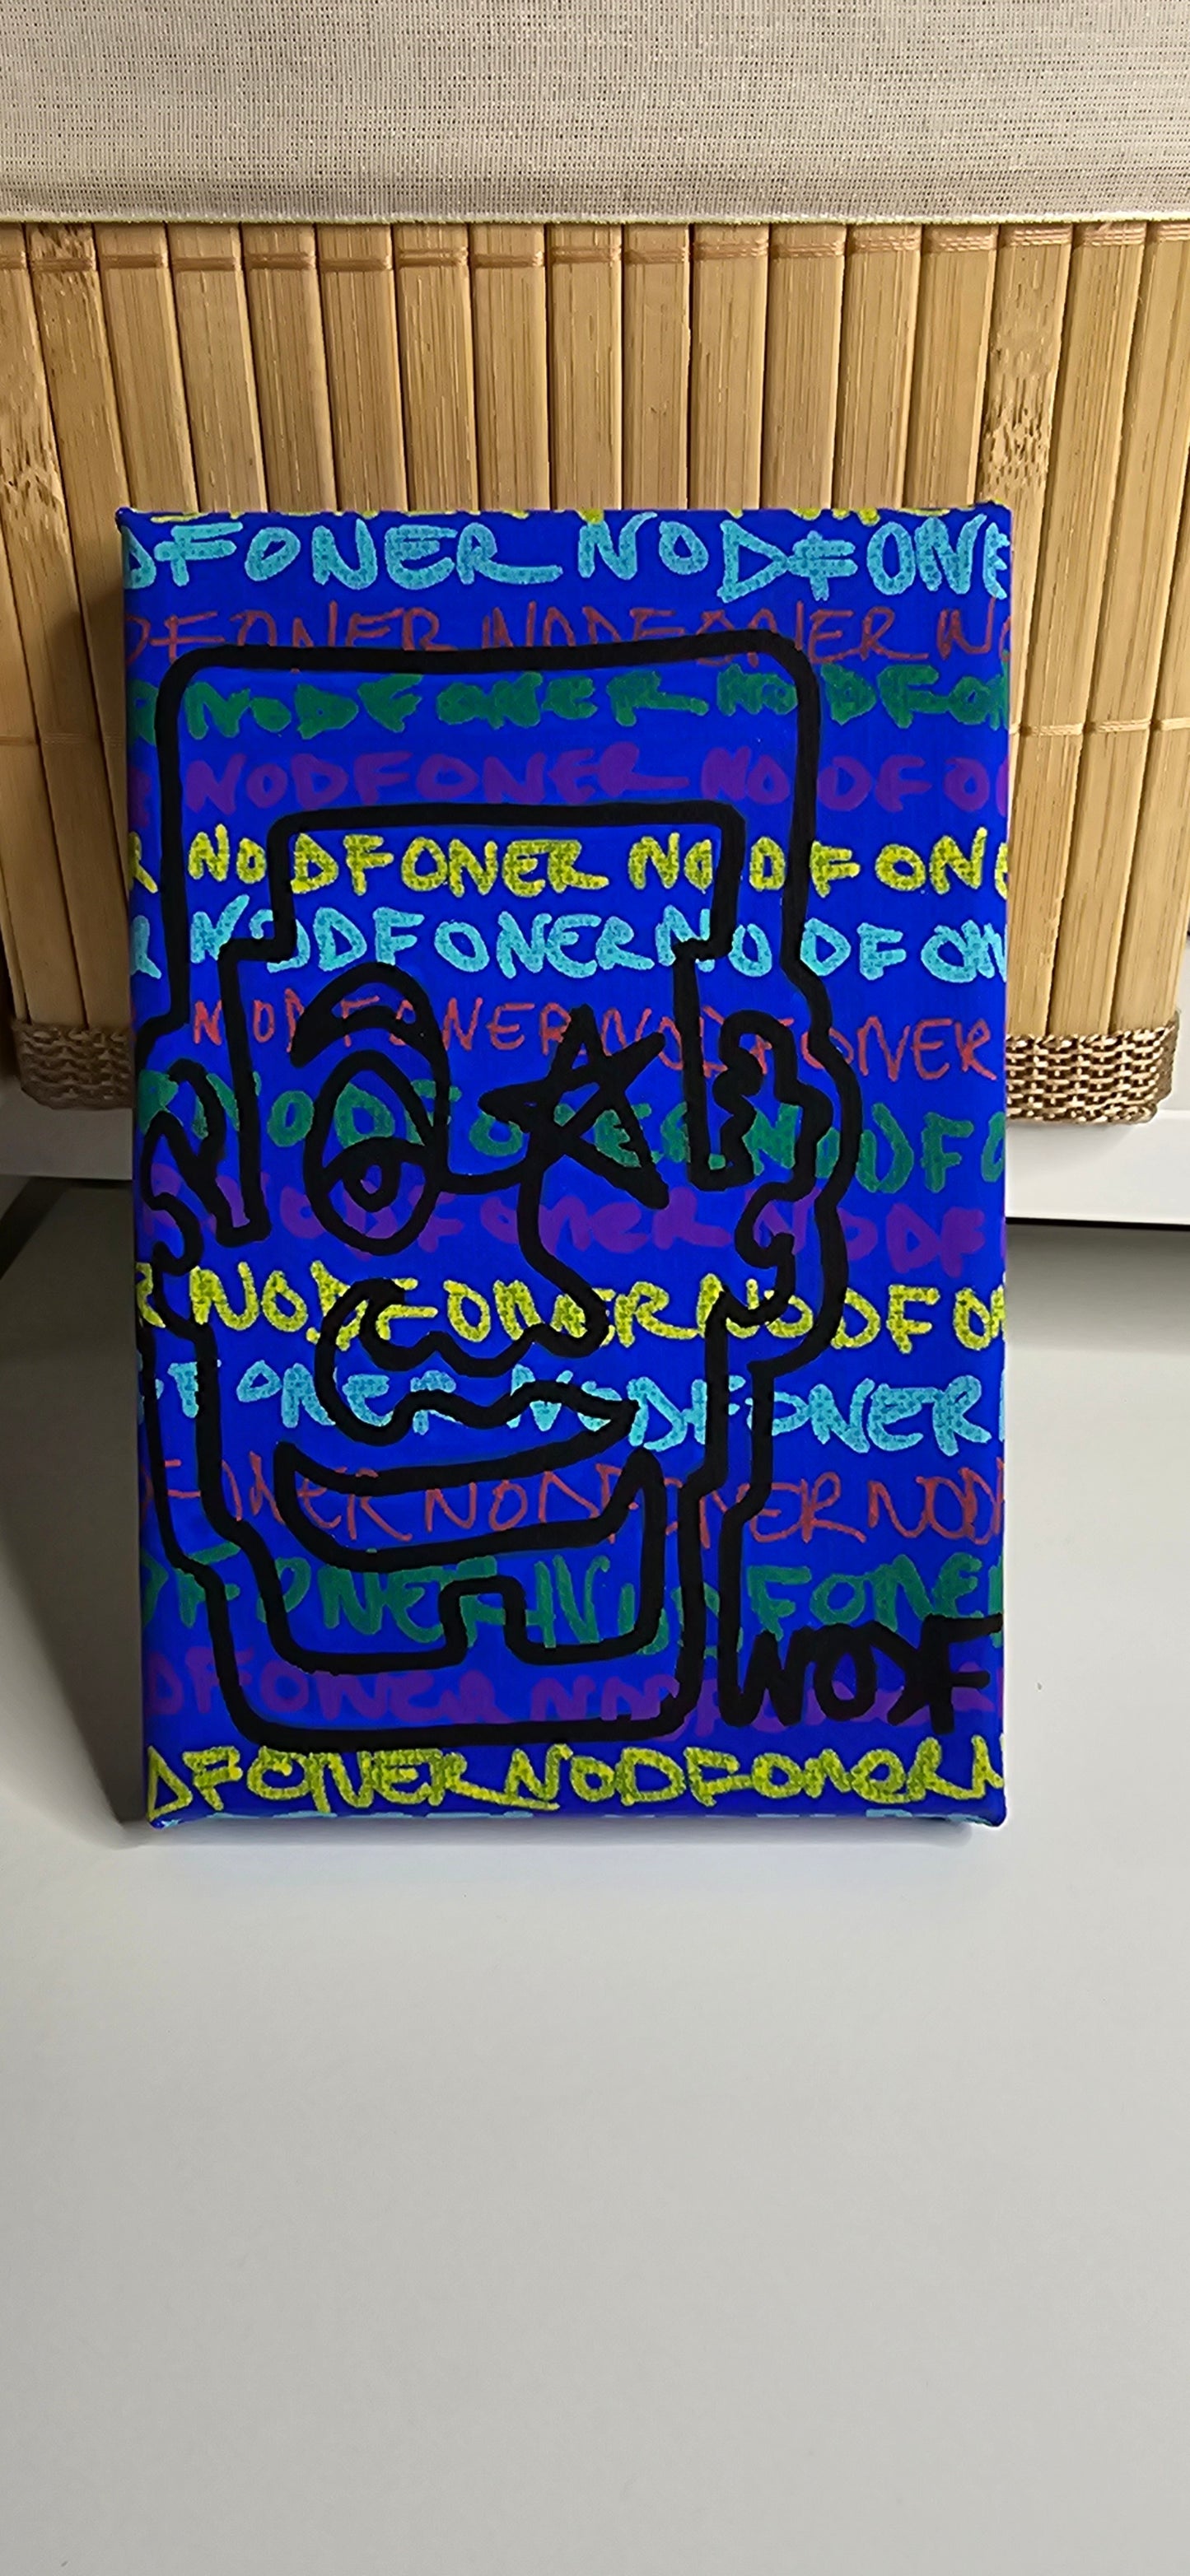 DFONER NODFONE
DFONER NODFONER NO
NODFONER NODFON
NODFONER NODFO
R NODFONER NODFONE
R NODFONERNODFON
NODFONERNODFONER
NODFONERNODFO
NODFONER NODF
R NODFONERNODFON
FONER NODFONER
FONER NODFONER NODF
DFONER NODFONER
DFONER NODFONER
NODF
DFONER NODFONER N